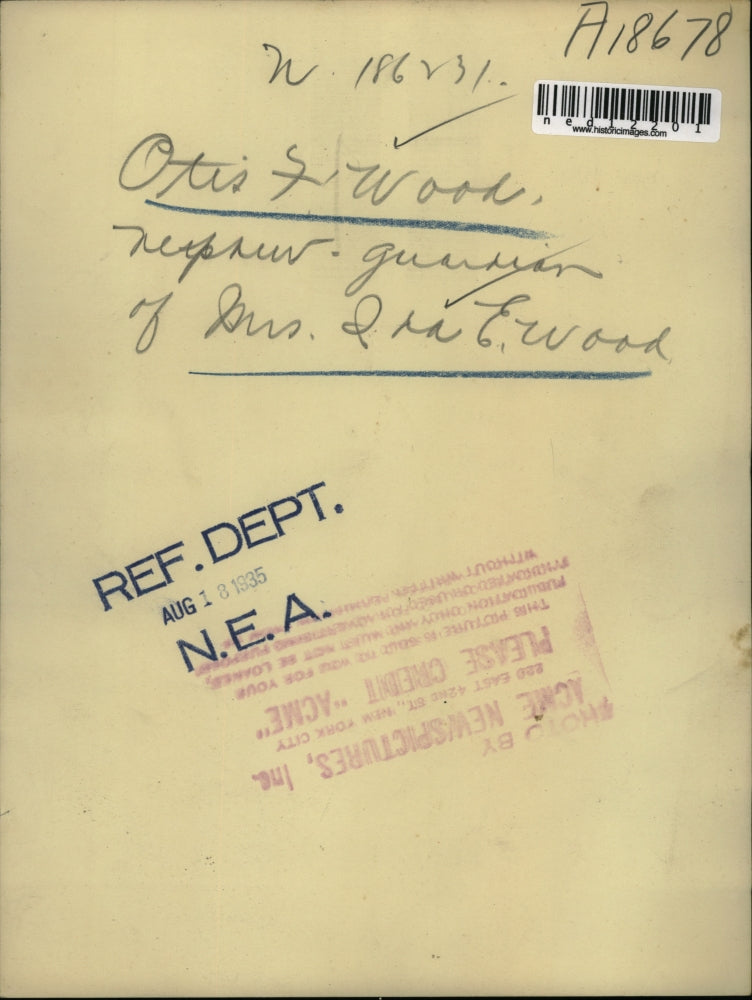 A18678
N. 186231.
ned12201
www.historicimages.com
Otis F. Wood.
nephew - guardian
of Mrs. Ida E. Wood
REF. DEPT.
AUG 18 1935
N.E.A.
PHOTO BY
ACME NEWSPICTURES, Inc.
220 EAST 42ND ST., NEW YORK CITY
PLEASE CREDIT "ACME"
THIS PICTURE IS SOLD TO YOU FOR YOUR
PUBLICATION ONLY AND MUST NOT BE LOANED,
SYNDICATED OR USED FOR ADVERTISING PURPOSES
WITHOUT WRITTEN PERMISSION